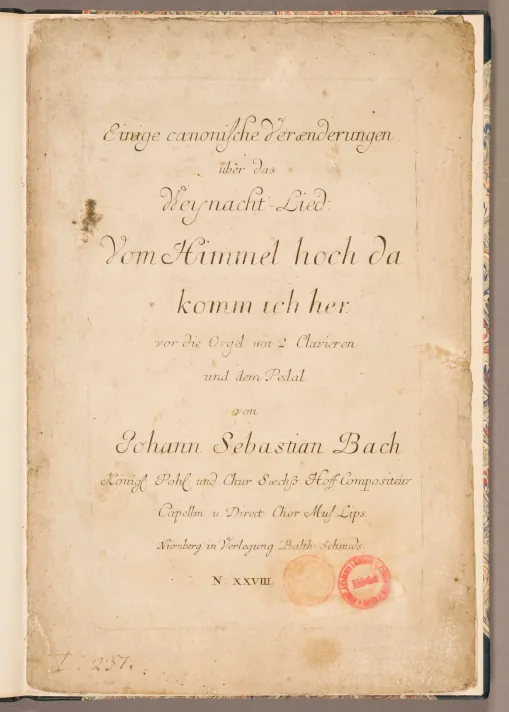 Einige canonische Verænderungen
über das
Weynacht-Lied:
Vom Himmel hoch da
komm ich her.
vor die Orgel mit 2 Clavieren
und dem Pedal
von
Johann Sebastian Bach
Königl. Pohl. und Chur Sæchß. Hoff Compositeur
Capellm. u. Direct. Chor. Mus. Lips.
Nürnberg in Verlegung Balth. Schmids.
N. XXVIII.